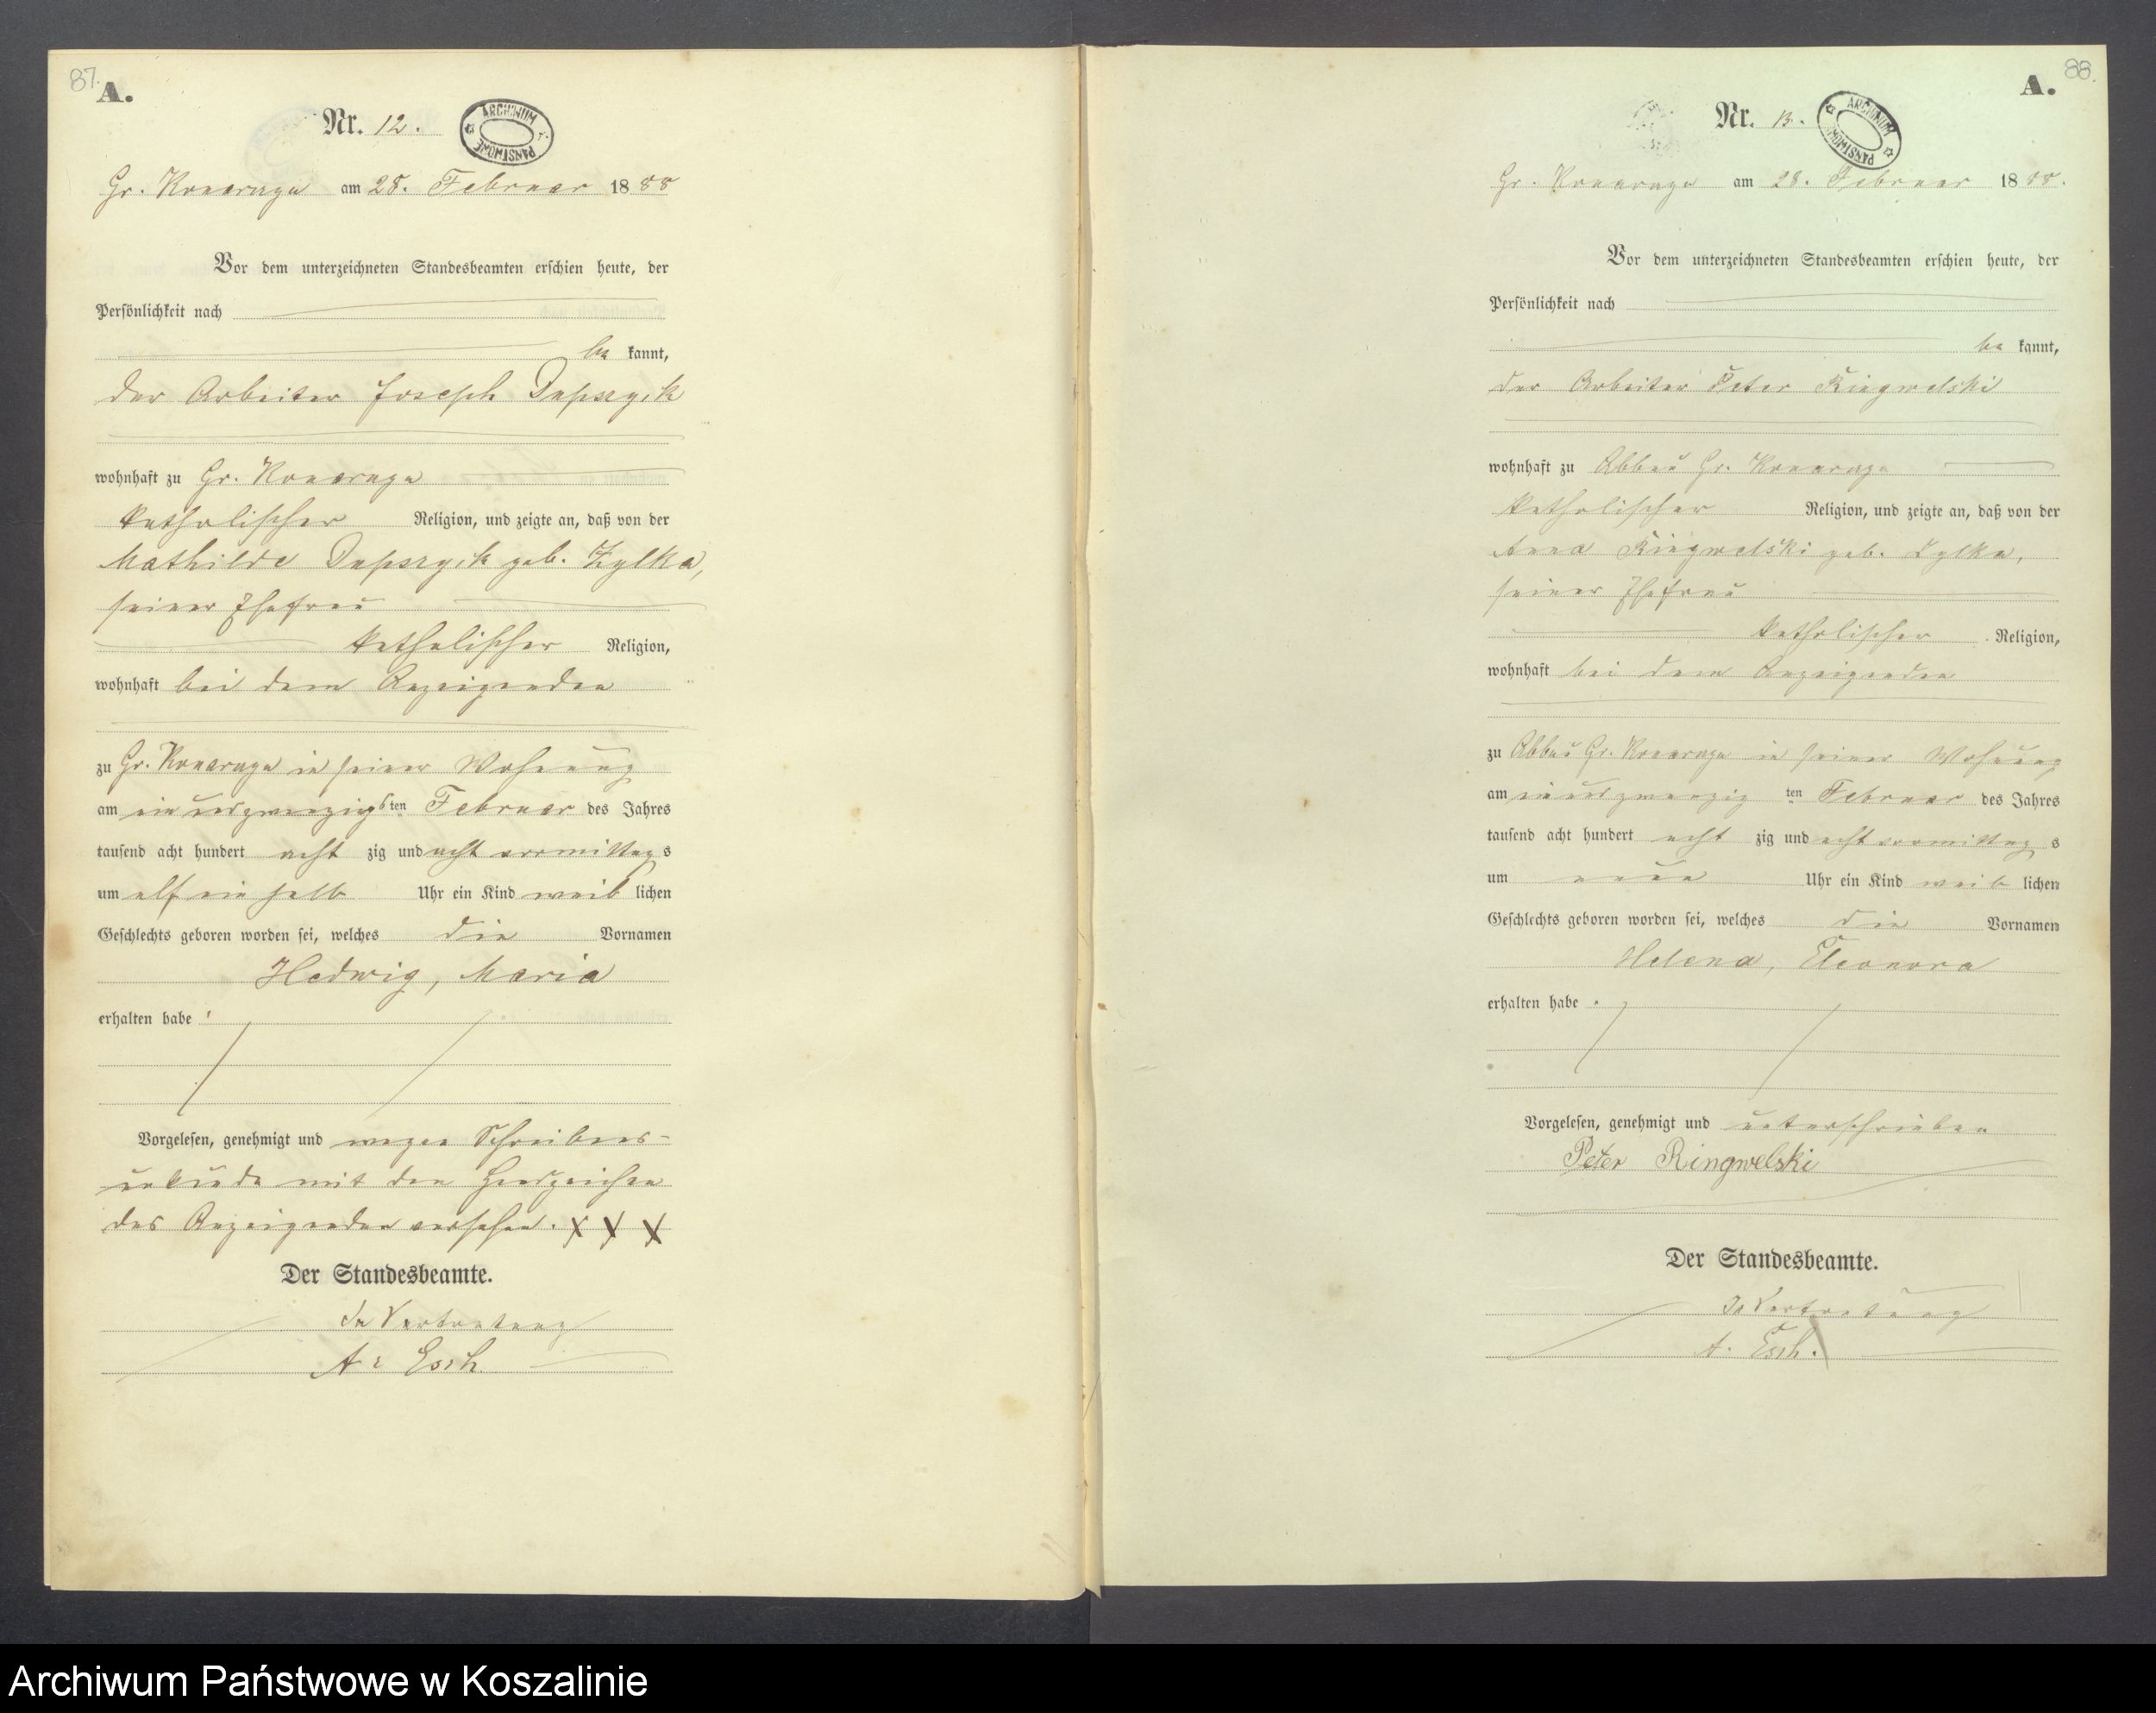 87.
A.
Nr. 12.
ARCHIWUM PAŃSTWOWE
Gr. Konarczyn am 28. Februar 1888
Vor dem unterzeichneten Standesbeamten erschien heute, der
Persönlichkeit nach
be kannt,
der Arbeiter Joseph
wohnhaft zu Gr. Konarczyn
katholischer Religion, und zeigte an, daß von der
Mathilde geb. Zylka,
seiner Ehefrau
katholischer Religion,
wohnhaft bei dem Anzeigenden
zu Gr. Konarczyn in seiner Wohnung
am einundzwanzigsten Februar des Jahres
tausend acht hundert acht zig und acht vormittags
um elf ein halb Uhr ein Kind weib lichen
Geschlechts geboren worden sei, welches die Vornamen
Hedwig, Maria
erhalten habe.
Vorgelesen, genehmigt und wegen Schreibens-
unkunde mit den Handzeichen
des Anzeigenden versehen. X X X
Der Standesbeamte.
In Vertretung
A. Esch
88.
A.
Nr. 13.
ARCHIWUM PAŃSTWOWE
Gr. Konarczyn am 28. Februar 1888.
Vor dem unterzeichneten Standesbeamten erschien heute, der
Persönlichkeit nach
be kannt,
der Arbeiter Peter Ringwelski
wohnhaft zu Abbau Gr. Konarczyn
katholischer Religion, und zeigte an, daß von der
Anna Ringwelski geb. Zylka,
seiner Ehefrau
katholischer Religion,
wohnhaft bei dem Anzeigenden
zu Abbau Gr. Konarczyn in seiner Wohnung
am einundzwanzig ten Februar des Jahres
tausend acht hundert acht zig und acht vormittags
um neun Uhr ein Kind weib lichen
Geschlechts geboren worden sei, welches die Vornamen
Helena, Eleonora
erhalten habe.
Vorgelesen, genehmigt und unterschrieben
Peter Ringwelski
Der Standesbeamte.
In Vertretung
A. Esch.
Archiwum Państwowe w Koszalinie